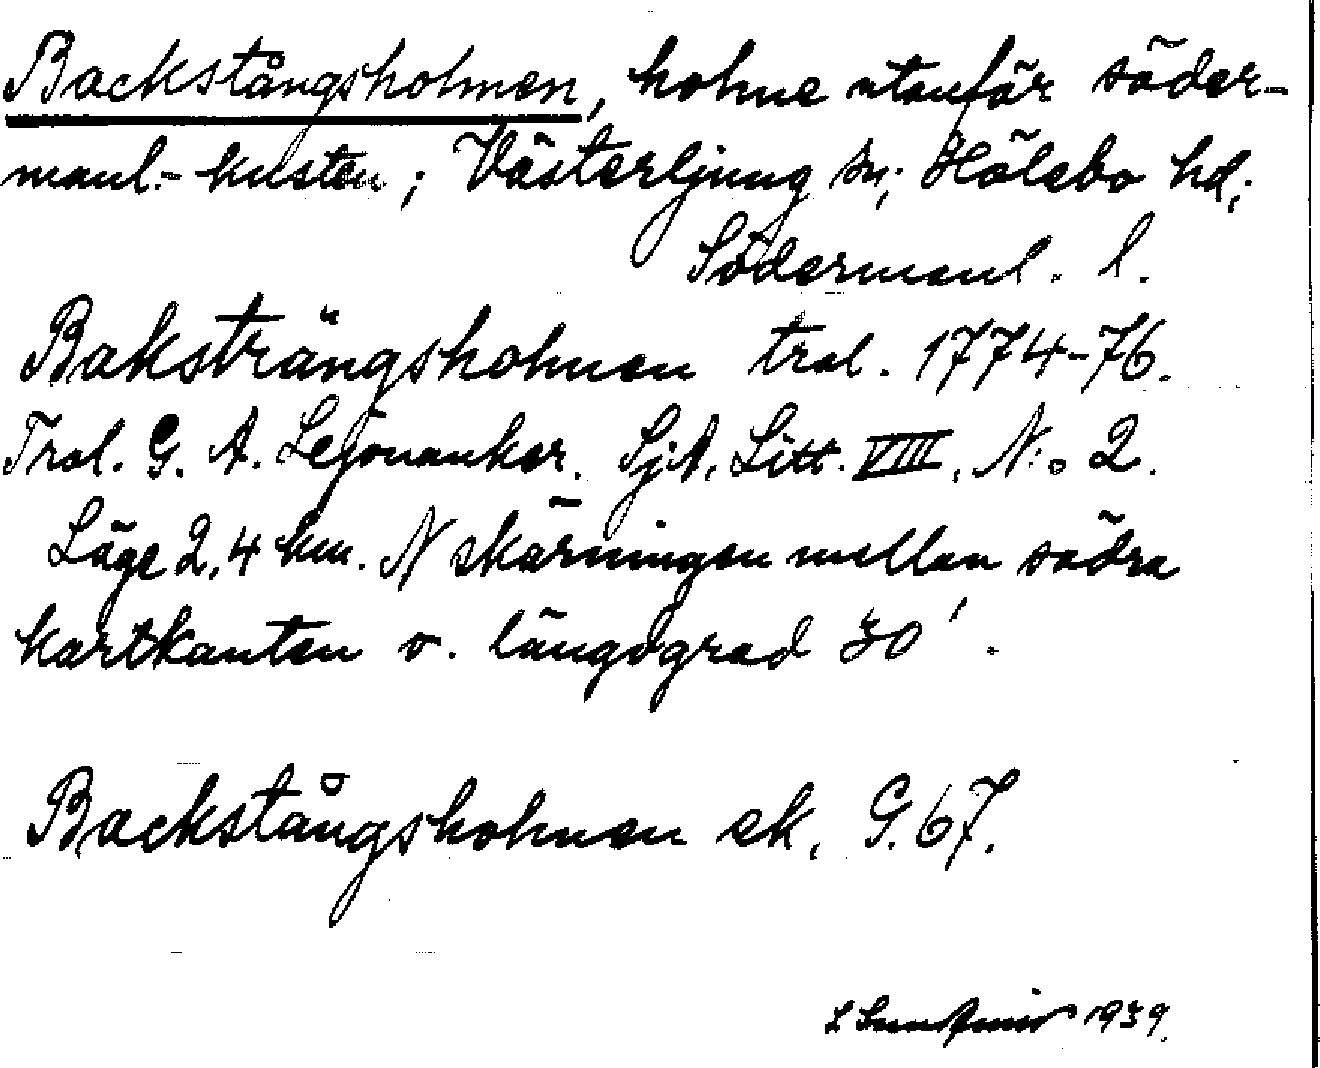 Backstångsholmen, holme utanför söder-
manl.-kusten; Västerljung sn; Hölebo hd;
Södermanl. l.
Baksträngsholmen tral. 1774-76.
Tral. G. A. Lejonanker. SjA, Litt. VIII. N:o 2.
Läge 2,4 km. N skärningen mellan södra
kartkanten o. längdgrad 30'.
Backstångsholmen ek. G. 67.
1939.